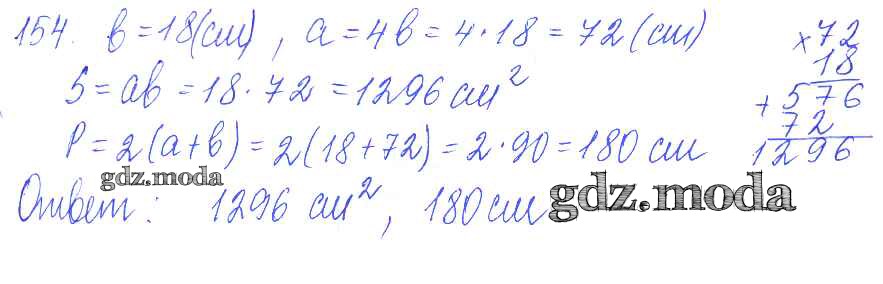 154. b = 18 (см), a = 4b = 4 · 18 = 72 (см)
S = ab = 18 · 72 = 1296 см²
P = 2(a + b) = 2(18 + 72) = 2 · 90 = 180 см
gdz.moda
Ответ: 1296 см², 180 см
gdz.moda
× 72
18
+ 576
72
1296